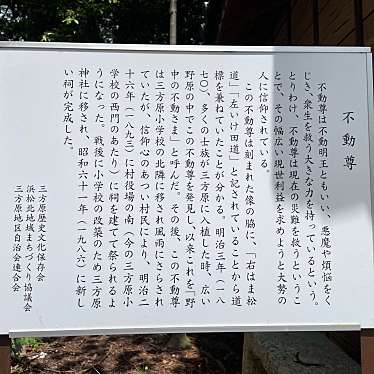 不動尊
不動尊は不動明王ともいい、悪魔や煩悩をく
じき、衆生を救う大きな力を持っているという。
とりわけ、不動尊は現在の災難を救うというこ
とで、その幅広い現世利益を求めようと大勢の
人に信仰されている
この不動尊は刻まれた像の脇に、「右はま松
道」「左いけ田道」と記されていることから道
標を兼ねていたことが分かる。明治三年（一八
七〇）、多くの士族が三方原に入植した時、広い
野原の中でこの不動尊を発見し、以来これを「野
中の不動さま」と呼んだ。その後、この不動尊
は三方原小学校の北隣に移され風雨にさらされ
ていたが、信仰心のあつい村民により、明治二
十六年（一八九三）に村役場の南（今の三方原小
学校の西門のあたり）に祠を建てて祭られるよ
うになった。戦後に小学校の改築のため三方原
神社に移され、昭和六十一年（一九八六）に新し
い祠が完成した。
三方原歴史文化保存会
浜松北地域まちづくり協議会
三方原地区自治会連合会